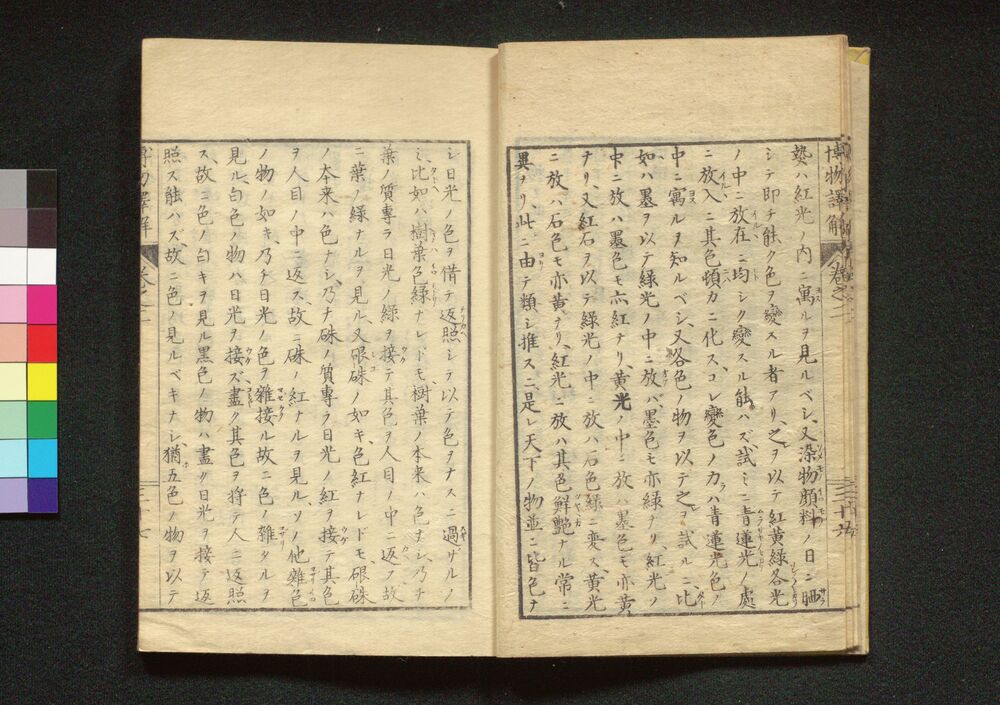 博物譯解 卷之二 三十六
熱ハ紅光ノ内ニ寓ルヲ見ルベシ、又染物顔料ノ日ニ晒
シテ即チ能ク色ヲ變スル者アリ、之ヲ以テ紅黄綠各光
ノ中ニ放在ニ均シク變スル能ハズ、試ミニ青蓮光ノ處
ニ放入ニ其色頓カニ化ス、コレ變色ノ力ハ青蓮光色ノ
中ニ寓ルヲ知ルベシ、又各色ノ物ヲ以テ之ヲ試ルニ、比
如ハ墨ヲ以テ綠光ノ中ニ放バ、墨色モ亦綠ナリ、紅光ノ
中ニ放ハ墨色モ亦紅ナリ、黄光ノ中ニ放ハ墨色モ亦黄
ナリ、又紅石ヲ以テ綠光ノ中ニ放ハ石色綠ニ変ス、黄光
ニ放ハ石色モ亦黄ナリ、紅光ニ放ハ其色鮮艶ナル常ニ
異ヲリ、此ニ由テ類シ推スニ、是レ天下ノ物並ニ皆色ナ
シ日光ノ色ヲ借テ返照シテ以テ色ヲナスニ過ザルノ
ミ、比如ハ樹葉色綠ナレドモ樹葉ノ本来ハ色ナシ、乃チ
葉ノ質專ラ日光ノ綠ヲ接テ其色ヲ人目ノ中ニ返ス故
ニ葉ノ綠ナルヲ見ル、又硍硃ノ如キ、色紅ナレドモ硍硃
ノ本来ハ色ナシ、乃チ硃ノ質專ラ日光ノ紅ヲ接テ其色
ヲ人目ノ中ニ返ス、故ニ硃ノ紅ナルヲ見ル、ソノ他雜色
ノ物ノ如キ、乃チ日光ノ色ヲ雜接ル故ニ色ノ雜タルヲ
見ル、白色ノ物ハ日光ヲ接ズ、盡ク其色ヲ将テ人ニ返照
ス、故ニ色ノ白キヲ見ル黒色ノ物ハ盡ク日光ヲ接テ返
照ス能ハズ、故ニ色ノ見ルベキナシ、猶五色ノ物ヲ以テ